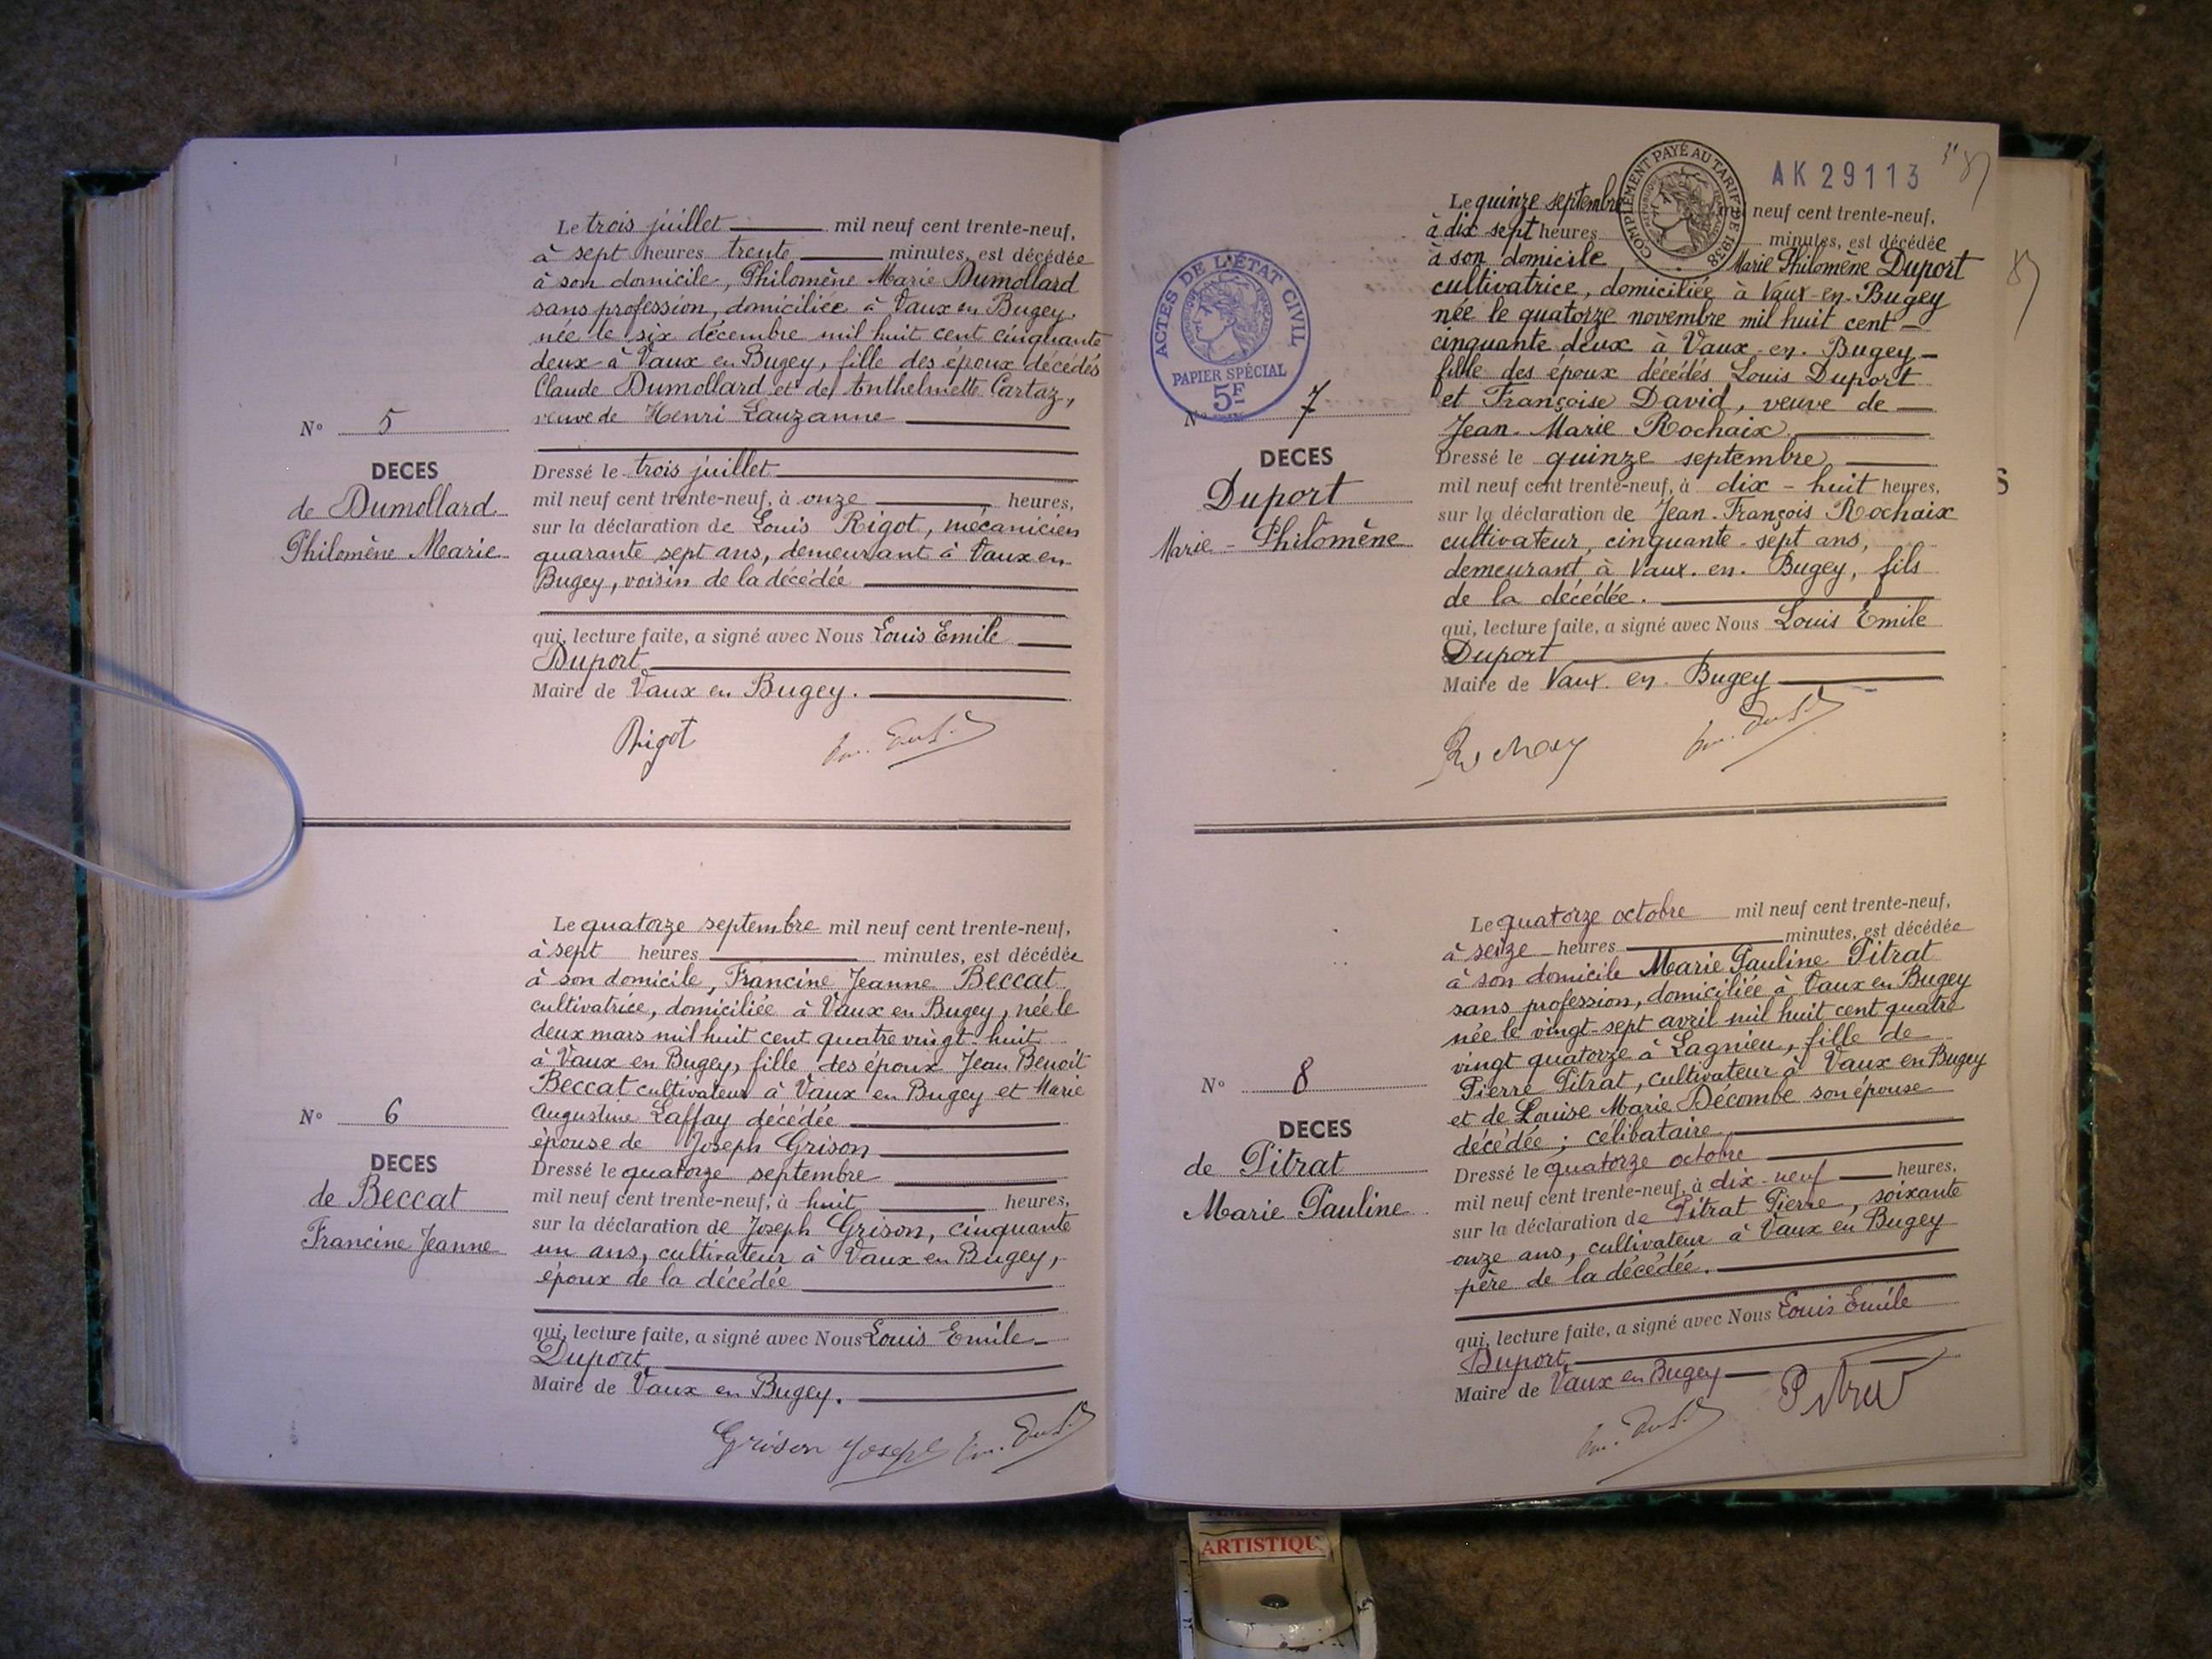 Le trois juillet mil neuf cent trente-neuf,
à sept heures trente minutes, est décédée
à son domicile, Philomène Marie Dumollard
sans profession, domiciliée à Vaux en Bugey,
née le six décembre mil huit cent cinquante
deux à Vaux en Bugey, fille des époux décédés
Claude Dumollard et de Anthelmette Cartaz,
veuve de Henri Lauzanne
N° 5
DECES
de Dumollard
Philomène Marie
Dressé le trois juillet
mil neuf cent trente-neuf, à onze heures,
sur la déclaration de Louis Rigot, mécanicien
quarante sept ans, demeurant à Vaux en
Bugey, voisin de la décédée
qui, lecture faite, a signé avec Nous Louis Emile
Duport
Maire de Vaux en Bugey.
Rigot
Le quatorze septembre mil neuf cent trente-neuf,
à sept heures minutes, est décédée
à son domicile, Francine Jeanne Beccat
cultivatrice, domiciliée à Vaux en Bugey, née le
deux mars mil huit cent quatre vingt-huit
à Vaux en Bugey, fille des époux Jean Benoit
Beccat cultivateur à Vaux en Bugey et Marie
Augustine Laffay décédée
épouse de Joseph Grison
N° 6
DECES
de Beccat
Francine Jeanne
Dressé le quatorze septembre
mil neuf cent trente-neuf, à huit heures,
sur la déclaration de Joseph Grison, cinquante
un ans, cultivateur à Vaux en Bugey,
époux de la décédée
qui, lecture faite, a signé avec Nous Louis Emile
Duport,
Maire de Vaux en Bugey.
Grison Joseph
AK 29113
87
87
COMPLÉMENT PAYÉ AU TARIF DE 1938
ACTES DE L'ÉTAT CIVIL
PAPIER SPÉCIAL
5F
Le quinze septembre mil neuf cent trente-neuf,
à dix sept heures minutes, est décédée
à son domicile Marie Philomène Duport
cultivatrice, domiciliée à Vaux-en-Bugey
née le quatorze novembre mil huit cent
cinquante deux à Vaux-en-Bugey
fille des époux décédés Louis Duport
et Françoise David, veuve de
Jean-Marie Rochaix
N° 7
DECES
Duport
Marie-Philomène
Dressé le quinze septembre
mil neuf cent trente-neuf, à dix-huit heures,
sur la déclaration de Jean-François Rochaix
cultivateur, cinquante-sept ans,
demeurant à Vaux-en-Bugey, fils
de la décédée.
qui, lecture faite, a signé avec Nous Louis Emile
Duport
Maire de Vaux-en-Bugey
Le quatorze octobre mil neuf cent trente-neuf,
à seize heures minutes, est décédée
à son domicile Marie Pauline Pitrat
sans profession, domiciliée à Vaux en Bugey
née le vingt-sept avril mil huit cent quatre
vingt quatorze à Lagnieu, fille de
Pierre Pitrat, cultivateur à Vaux en Bugey
et de Louise Marie Décombe son épouse
décédée ; célibataire
N° 8
DECES
de Pitrat
Marie Pauline
Dressé le quatorze octobre
mil neuf cent trente-neuf, à dix-neuf heures,
sur la déclaration de Pitrat Pierre, soixante
onze ans, cultivateur à Vaux en Bugey
père de la décédée.
qui, lecture faite, a signé avec Nous Louis Emile
Duport,
Maire de Vaux en Bugey
ARTISTIQU